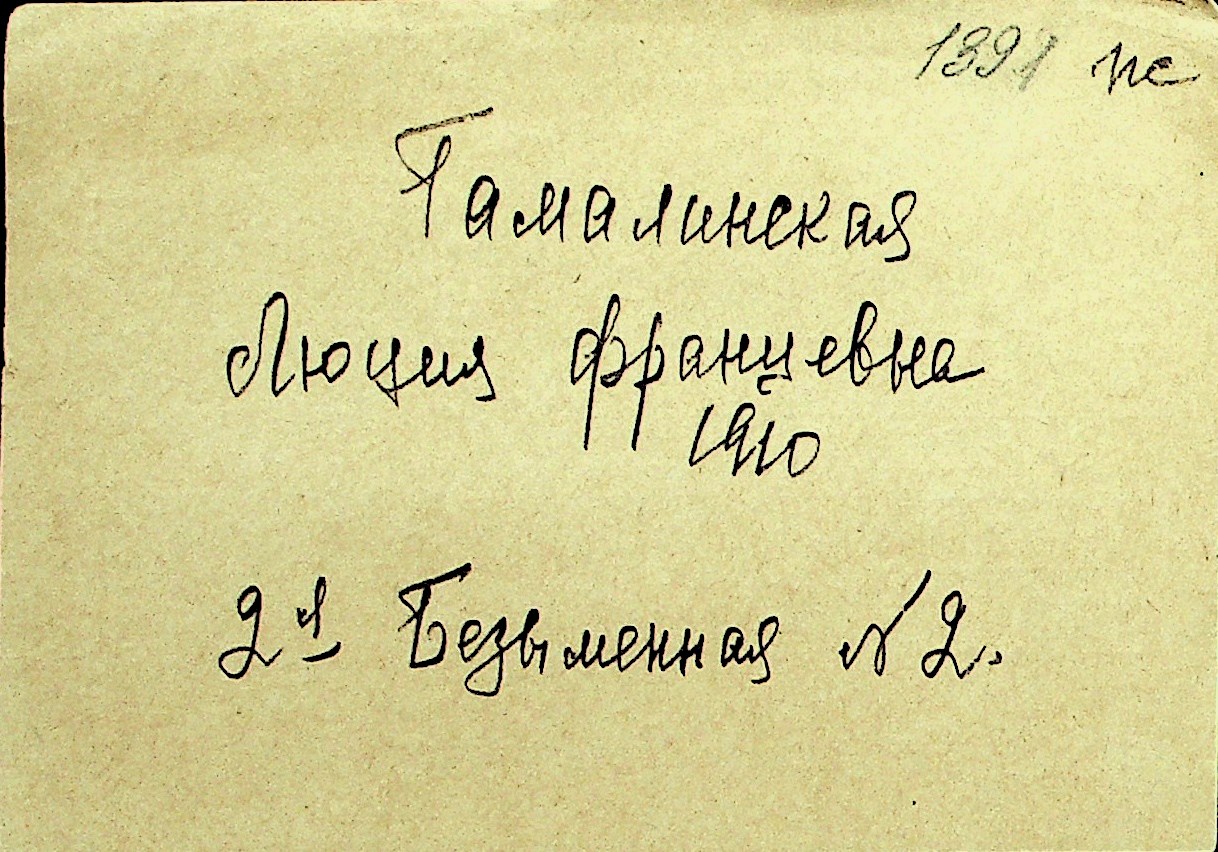 1391 пс
Гамалинская
Люция Францевна
1910
2я Безыменная №2.